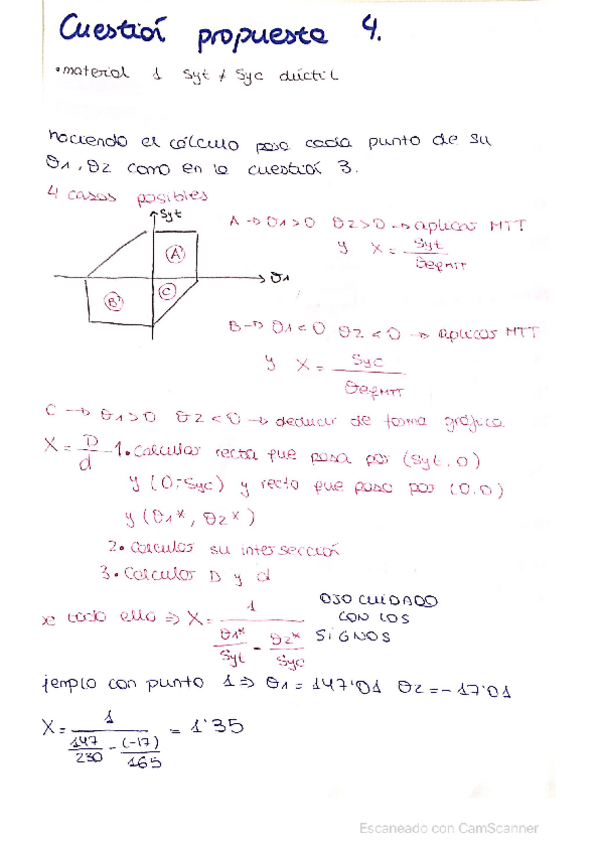 Cuestión propuesta 4.
•material 1 Syt ≠ Syc dúctil
haciendo el cálculo para cada punto de su
σ1, σ2 como en la cuestión 3.
4 casos posibles
Syt
σ1
A
B
C
A → σ1>0 σ2>0 → aplicar MTT
y X = Syt / σeqMTT
B → σ1<0 σ2<0 → aplicar MTT
y X = Syc / σeqMTT
C → σ1>0 σ2<0 → deducir de forma gráfica
X = D/d 1. Calcular recta que pasa por (Syt, 0)
y (0, -Syc) y recta que pasa por (0,0)
y (σ1*, σ2*)
2. Calculas su intersección
3. Calcular D y d
todo ello ⇒ X = 1 / (σ1*/Syt - σ2*/Syc)
OJO CUIDADO
CON LOS
SIGNOS
jemplo con punto 1 ⇒ σ1 = 147'01 σ2 = -17'01
X = 1 / (147/230 - (-17)/165) = 1'35
Escaneado con CamScanner